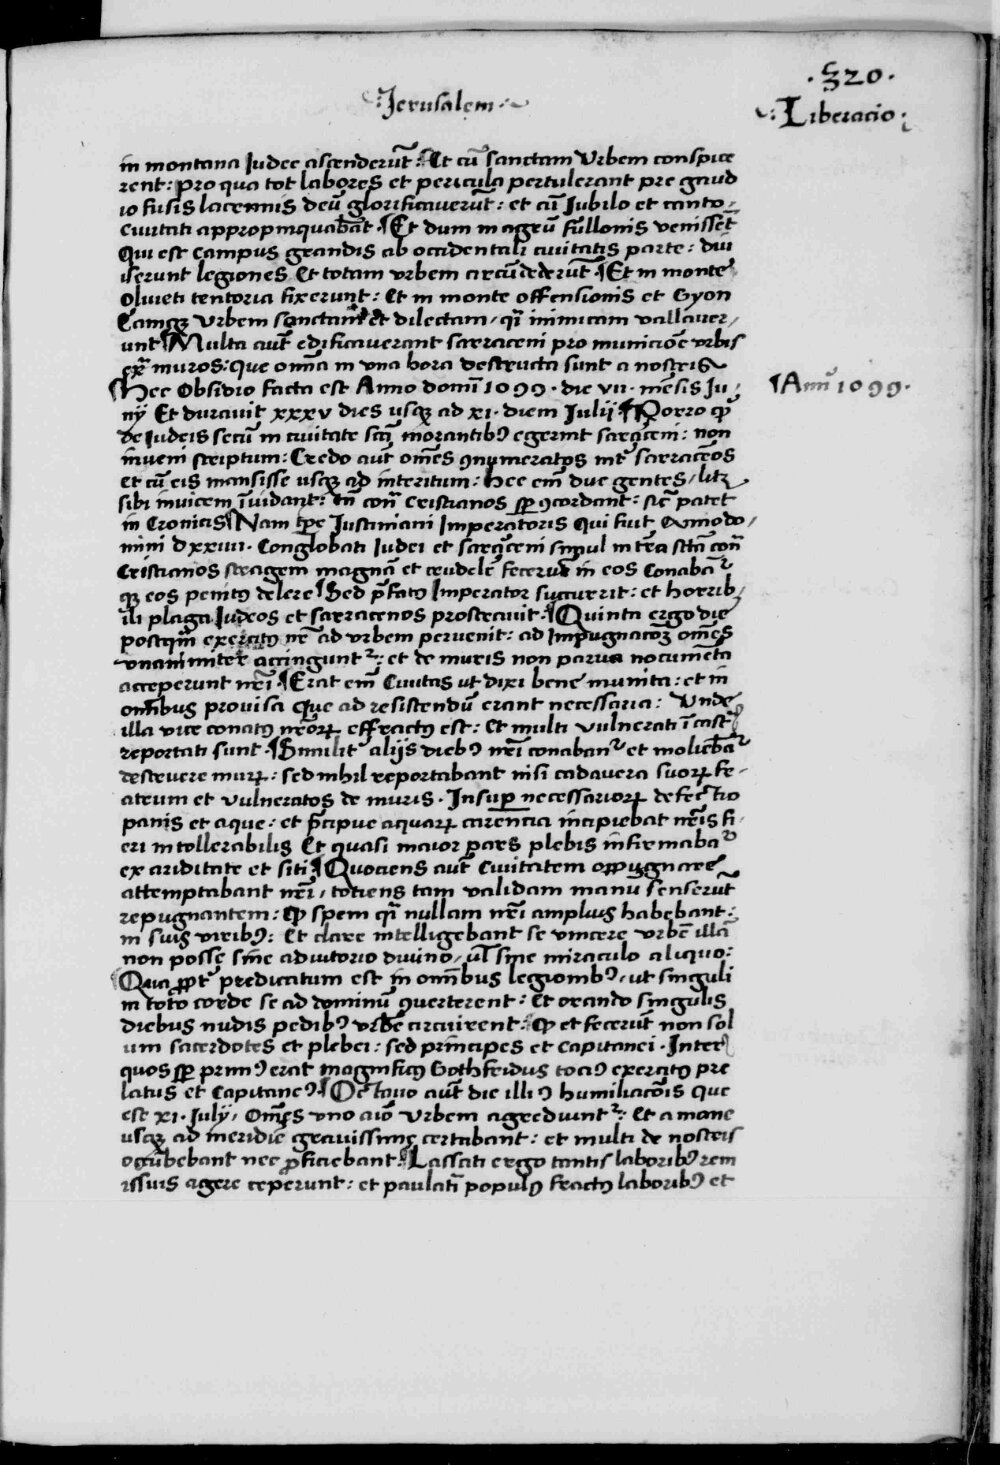 ·320·
Jerusalem·
Liberacio·
in montana Iudee ascenderūt: Et cū sanctam Urbem conspice
rent: pro qua tot labores et pericula pertulerant pre gaud
io fusis lacrimis deū glorificaverūt: et cū Jubilo et canto-
Civitati appropinquabāt· ¶Et dum in agrū fullonis venissēt
Qui est campus grandis ab occidentali civitatis parte: divi
serunt legiones Et totam urbem circūdederūt ¶Et in monte
Oliveti tentoria fixerunt: Et in monte offensionis et Gyon
Eamqꝫ Urbem sanctam et dilectam, qͣi inimicam vallaver,
unt ¶Multa aut̄ edificaverant sarraceni pro municiōe urbis
ex̄ muros: Que omīa in una hora destructa sunt a nostris
¶Hec Obsidio facta est Anno domī 1099· die vii· mēsis Iu,
nij Et duravit xxxv dies usqꝫ ad xi· diem Iulij ¶Porro qͩ
de Iudeis secū in civitate sct̄i morantibꝰ egerint sarraceni: non
inveni scriptum: Credo aut̄ om̄es ꝯnumeratos int̄ sarracēos
et cū eis mansisse usqꝫ ad interitum: Hec em̄ due gentes, litꝫ
sibi invicem īvidant: tn̄ con̄ Cristianos sꝑ ꝯcordant: sic̄ patet
in Cronicis ¶Nam tp̄e Iustiniani Imperatoris Qui fuit Anno do,
mini dxxiiii· Conglobati Iudei et sarraceni simul in t̄ra sctā con̄
Cristianos stragem magnā et crudelē fecerūt in eos Conabāt᷑
qꝫ eos penitꝰ delere ¶Sed p̄fatꝰ Imperator succurrit: et horrib,
ili plaga Iudeos et sarracenos prostravit· ¶Quinta ergo die
postqͣm exercitꝰ nr̄ ad urbem pervenit: ad Impugnacōꝫ om̄es
unanimiter accingunt᷑: et de muris non parva nocumēta
acceperunt nr̄i· ¶Erat em̄ Civitas ut dixi bene munita: et in
omībus provisa Que ad resistendū erant necessaria: Unde
illa vice conatꝰ nr̄oꝝ effractus est: Et multi vulnerati ī castͣ
reportati sunt· ¶Similit̄ aliis diebꝰ nr̄i conaban᷑ et moliebāt᷑
destruere muꝝ: sed nihil reportabant nisi cadavera suoꝝ fr-
atrum et vulneratos de muris· Insuꝑ necessarioꝝ defectio
panis et aque: et p̄cipue aquaꝝ carentia incipiebat nr̄is fi,
eri intollerabilis Et quasi maior pars plebis infirmabat᷑
ex ariditate et siti ¶Quociens aut̄ Civitatem oppugnare
attemptabant nr̄i, totiens tam validam manu senserūt
repugnantem: Qͩ spem qͣi nullam nr̄i amplius habebant:
in suis viribꝰ: Et clare intelligebant se vincere urbē illā
non posse sine adiutorio divino, ūl sine miraculo aliquo:
¶Quaꝓpt̄ predicatum est in omībus legionibꝰ, ut singuli
in toto corde se ad dominū ꝯverterent: Et orando singulis
diebus nudis pedibꝰ urbē circuirent: Qͩ et fecerūt non sol
um sacerdotes et plebei: sed principes et capitanei· Inter
quos sꝑ primꝰ erat magnificꝰ Gothfridus tociꝰ exercitꝰ pre
latus et Capitaneꝰ· ¶Octavo aut̄ die illiꝰ humiliacōis que
est xi· Iuly, Om̄es uno aīo Urbem agrediunt᷑: Et a mane
usqꝫ ad meridiē gravissime certabant: et multi de nostris
occūbebant nec ꝓficiebant ¶Lassati ergo tantis laboribꝰ rem
issius agere ceperunt: et paulatī populꝰ fractꝰ laboribꝰ et
¶Annͦ 1099·